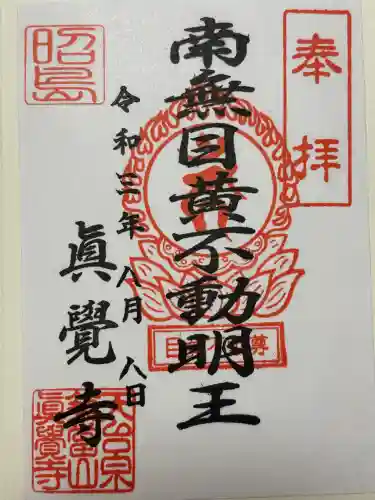 奉拝
南無目黄不動明王
令和三年八月八日
眞覺寺
昭島
眞覺寺